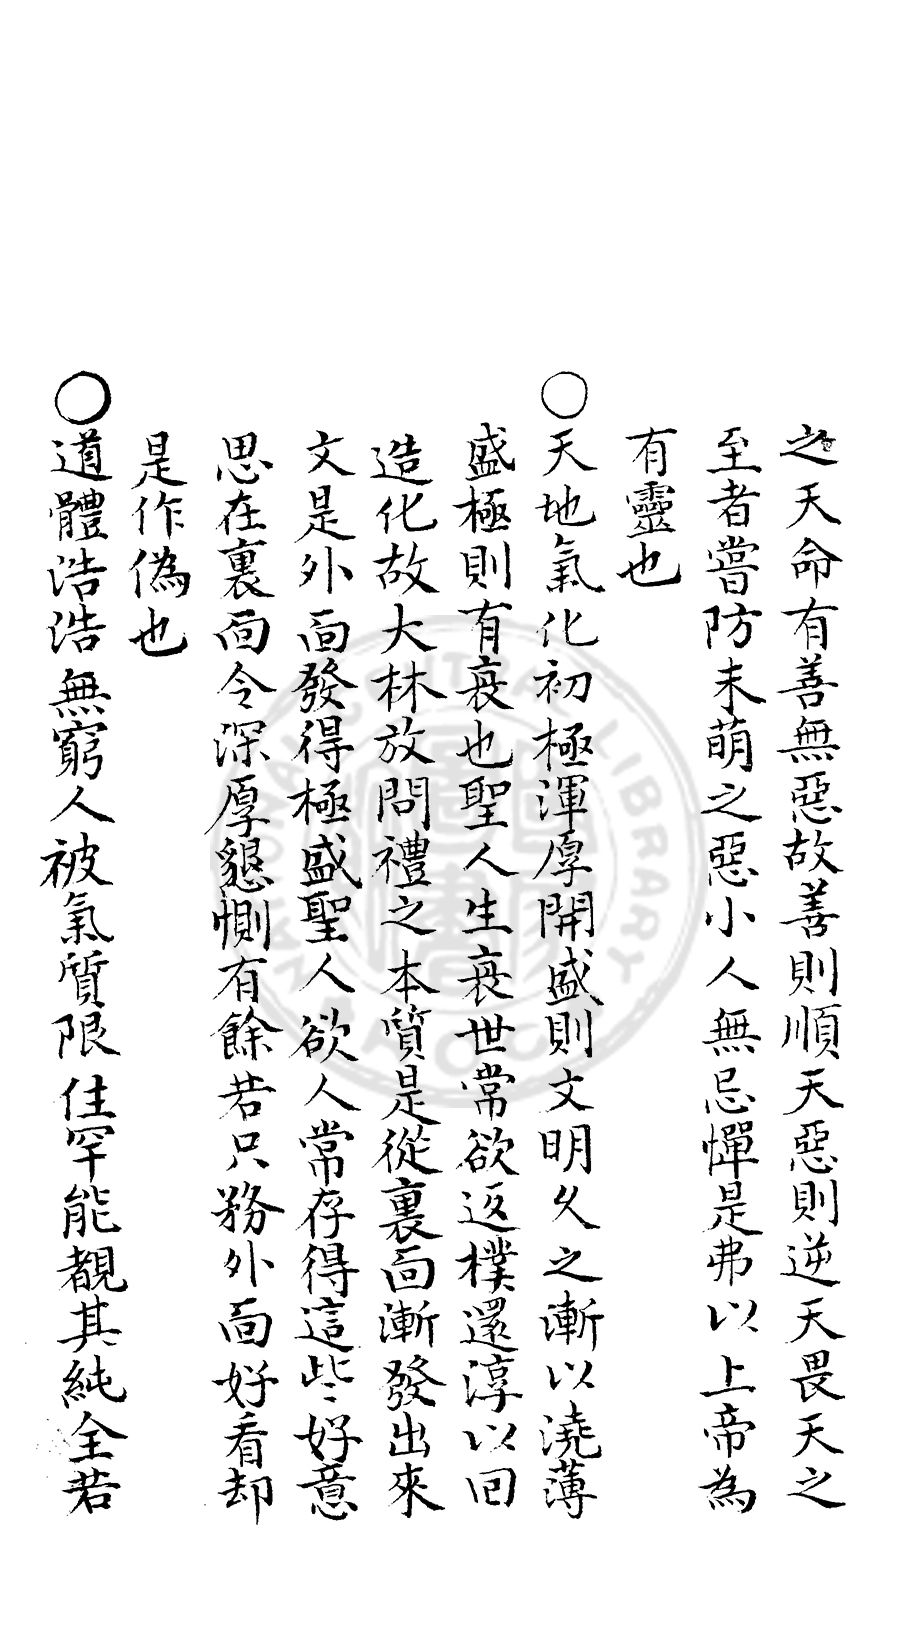 之天命有善無惡故善則順天惡則逆天畏天之
至者嘗防未萌之惡小人無忌憚是弗以上帝為
有靈也
○天地氣化初極渾厚開盛則文明久之漸以澆薄
盛極則有衰也聖人生衰世常欲返樸還淳以回
造化故大林放問禮之本質是從裏面漸發出來
文是外面發得極盛聖人欲人常存得這些好意
思在裏面令深厚懇惻有餘若只務外面好看却
是作偽也
○道體浩浩無窮人被氣質限住罕能覩其純全若
NATIONAL CENTRAL LIBRARY